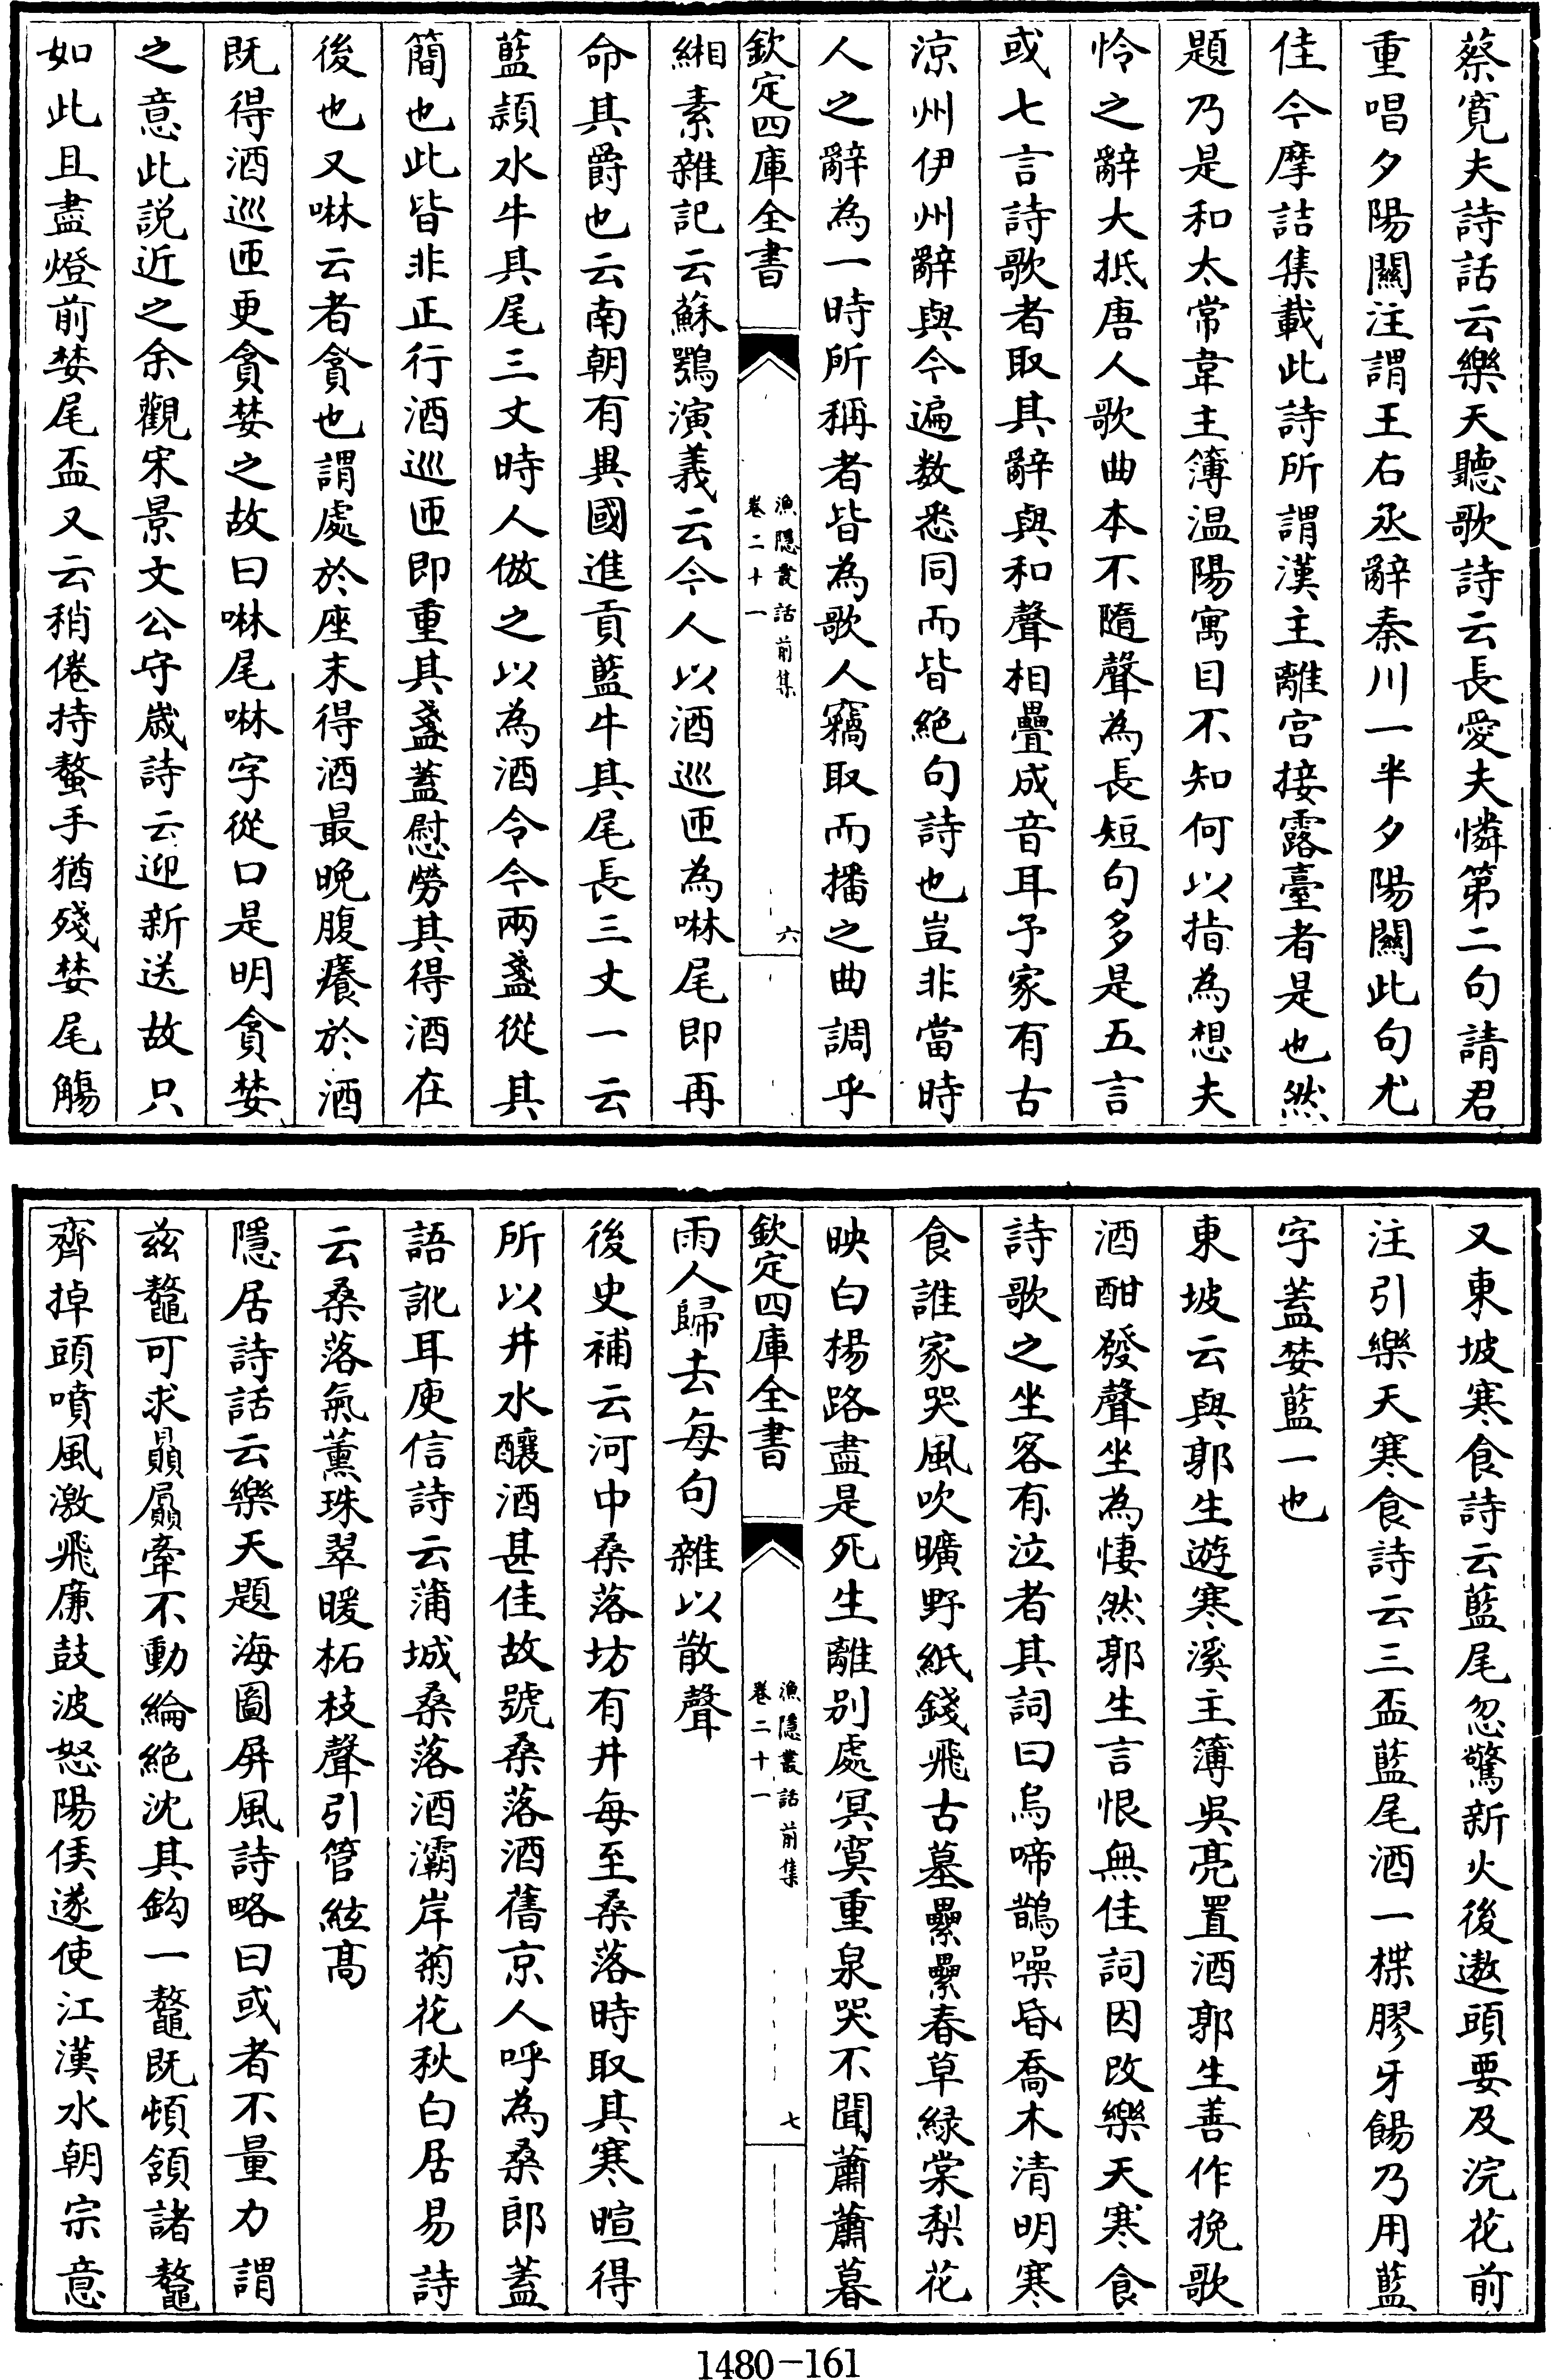 蔡寛夫詩話云樂天聽歌詩云長愛夫憐第二句請君
重唱夕陽關注謂王右丞辭秦川一半夕陽關此句尤
佳今摩詰集載此詩所謂漢主離宫接露臺者是也然
題乃是和太常韋主簿温陽寓目不知何以指為想夫
怜之辭大抵唐人歌曲本不隨聲為長短句多是五言
或七言詩歌者取其辭與和聲相疊成音耳予家有古
涼州伊州辭與今遍数悉同而皆絶句詩也豈非當時
人之辭為一時所稱者皆為歌人竊取而播之曲調乎
欽定四庫全書
漁隱叢話前集
卷二十一
六
緗素雜記云蘇鶚演義云今人以酒巡匝為啉尾即再
命其爵也云南朝有異國進貢藍牛其尾長三丈一云
藍潁水牛其尾三丈時人倣之以為酒令今兩盞從其
簡也此皆非正行酒巡匝即重其盞蓋慰勞其得酒在
後也又啉云者貪也謂處於座末得酒最晚腹癢於酒
既得酒巡匝更貪婪之故曰啉尾啉字從口是明貪婪
之意此説近之余觀宋景文公守歲詩云迎新送故只
如此且盡燈前婪尾盃又云稍倦持螯手猶殘婪尾觴
又東坡寒食詩云藍尾忽驚新火後遨頭要及浣花前
注引樂天寒食詩云三盃藍尾酒一楪膠牙餳乃用藍
字蓋婪藍一也
東坡云與郭生遊寒溪主簿吳亮置酒郭生善作挽歌
酒酣發聲坐為悽然郭生言恨無佳詞因改樂天寒食
詩歌之坐客有泣者其詞曰烏啼鵲噪昏喬木清明寒
食誰家哭風吹曠野紙錢飛古墓纍纍春草緑棠梨花
映白楊路盡是死生離别處冥寞重泉哭不聞蕭蕭暮
欽定四庫全書
漁隱叢話前集
卷二十一
七
雨人歸去每句雜以散聲
後史補云河中桑落坊有井每至桑落時取其寒暄得
所以井水釀酒甚佳故號桑落酒舊京人呼為桑郎蓋
語訛耳庾信詩云蒲城桑落酒灞岸菊花秋白居易詩
云桑落氣薰珠翠暖柘枝聲引管絃髙
隱居詩話云樂天題海圖屏風詩略曰或者不量力謂
兹鼇可求贔屭牽不動綸絶沈其鈎一鼇既頓頷諸鼇
齊掉頭噴風激飛廉鼓波怒陽侯遂使江漢水朝宗意
1480-161